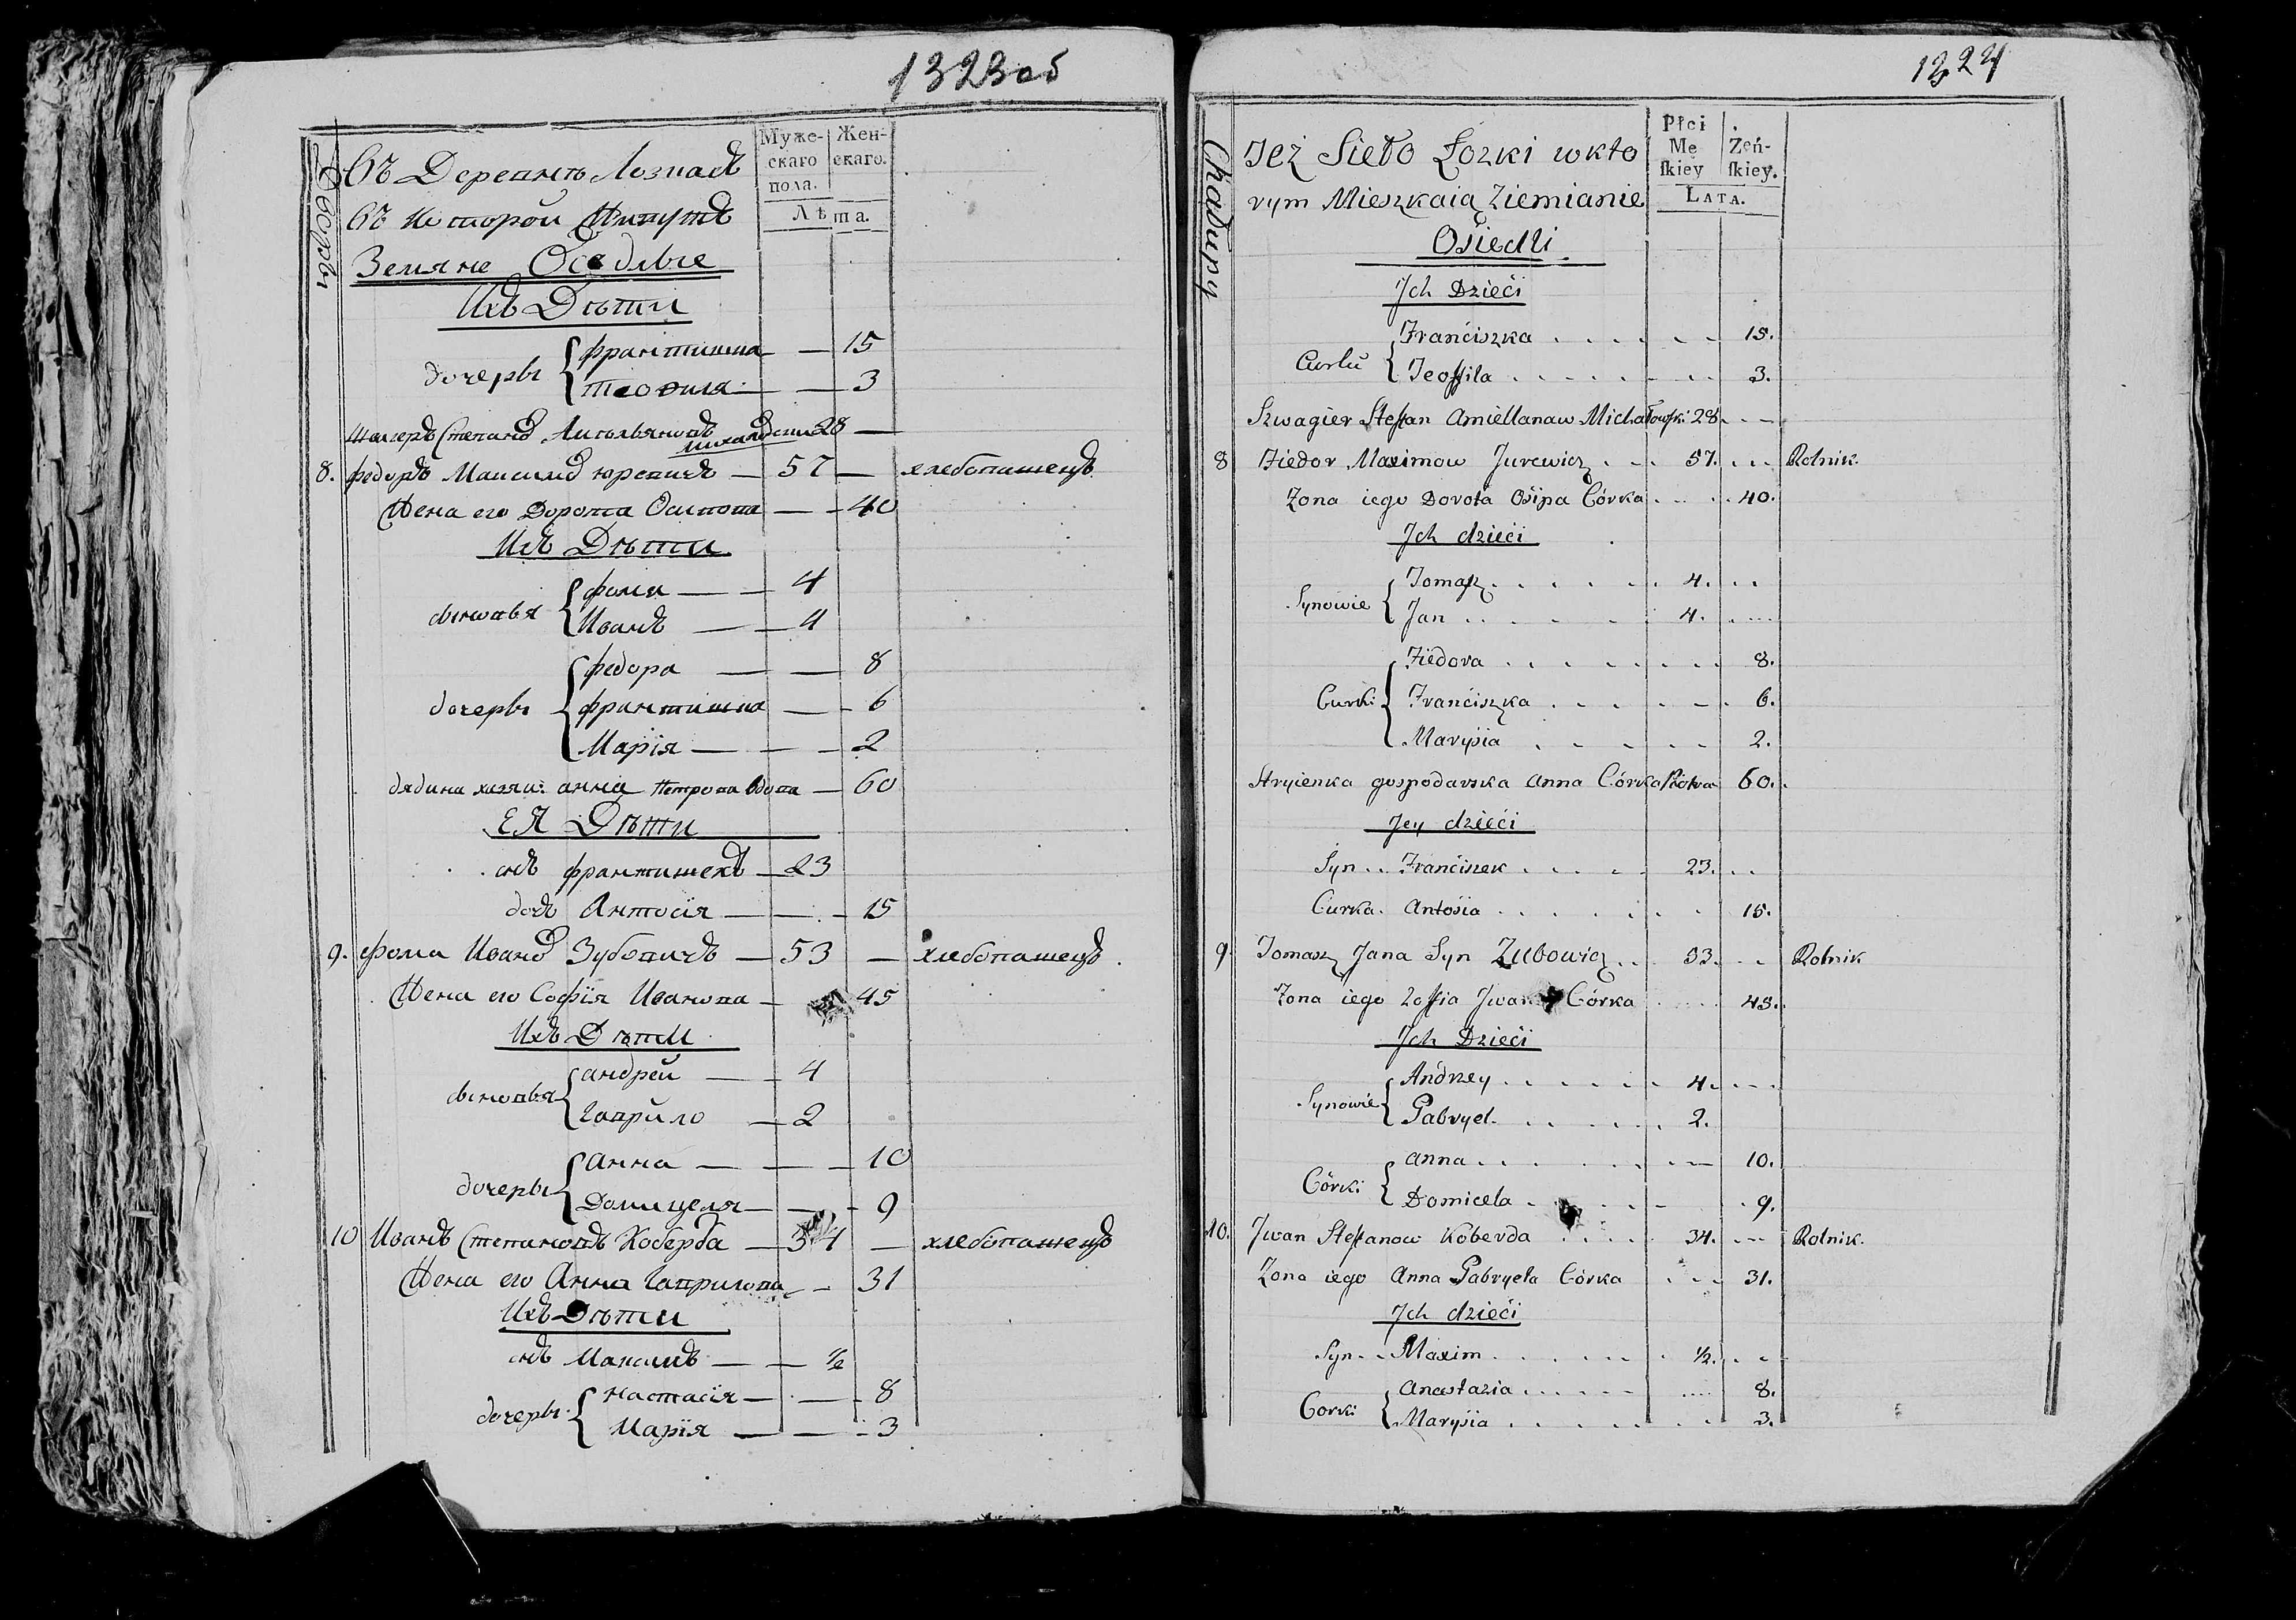 1323об
Дворы
Муже-
скаго
пола.
Жен-
скаго.
Лѣта.
Въ Деревнѣ Лозкахъ
въ которой живутъ
Земяне Оседлые
Ихъ Дѣти
дочеры
Франтишка — — 15
Теофиля — — 3
Швагеръ Степанъ Михаловски 28 —
8. Федоръ Максимо Юревичъ — 57 — хлебопашецъ
Жена его Дорота Осипова — — 40
Ихъ Дѣти
сыновья
Фома — — 4
Иванъ — — 4
дочеры
Федора — — 8
Франтишка — — 6
Марія — — — 2
дядина хазяи: анна Петрова вдова — 60
ЕЯ Дѣти
сынъ Франтишекъ — 23
дочь Антосія — — — 15
9. Фома Ивано Зубовичъ — 53 — хлебопашецъ
Жена его Софія Иванова — 45
Ихъ Дѣти
сыновья
андрей — — 4
Гаврило — 2
дочеры
Анна — — — 10
Домицеля — — — 9
10 Иванъ Степановъ Коберда — 34 — хлебопашецъ
Жена его Анна Гаврилова — 31
Ихъ Дѣти
сынъ Максимъ — — ½
дочеры
Настасія — — — 8
Марія — — — 3
1324
Chałupy
Płci
Mę
skiey
Żeń-
skiey.
LATA.
Też Sieło Łozki wkto
rym Mieszkaią Ziemianie
Osiedli
Jch Dzieći
Franćiszka . . . . . . 15.
Teoffila . . . . . . 3.
Szwagier Steffan Amiellanaw Michałowski 28. . .
8 Fiedor Maximow Jurewicz . . . 57. . . . Rolnik.
Zona iego Dorota Osipa Córka . . . . 40.
Jch dzieći
Synowie
Tomasz . . . . . . 4. . .
Jan . . . . . . 4. . . .
Curki
Fiedora . . . . . . . 8.
Franćiszka . . . . . . 6.
Marysia . . . . . . 2.
Stryienka gospodarska Anna Córka Piotra 60.
Jey dzieći
Syn . . Franćiszek . . . . . 23. . .
Curka. Antosia . . . . . . 15.
9. Tomasz Jana Syn Zubowicz . . 53. . . Rolnik
Zona iego Zoffia Córka . . . . 45.
Jch Dzieći
Synowie
Andrzey . . . . . . 4. . . .
Gabryel . . . . . . 2.
Córki
Anna . . . . . . . 10.
Domicela . . . . . 9.
10. Jwan Steffanow Koberda . . . . 34. . . . Rolnik.
Zona iego Anna Gabryela Córka . . . 31.
Jch dzieći
Syn . . Maxim . . . . . . ½. . .
Corki
Anastazia . . . . . . . 8.
Marysia . . . . . . . 3.